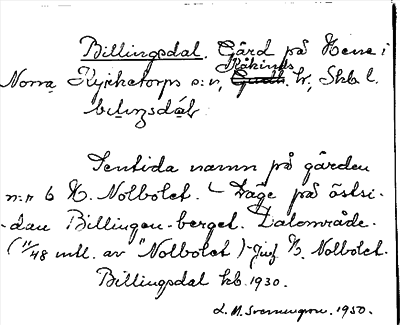 Billingsdal. Gård på Hene i
Våkinds
Norra Kyrketorps s:n, Gudh. hd, Skb l.
bilıŋsdάl
Sentida namn på gården
n:r 6 N. Nolbolet. – Läge på östsi-
dan Billingen-berget. Dalområde.
(11/48 mtl. av "Nolbolet") – Jmf N. Nolbolet.
Billingsdal kb. 1930.
1950.